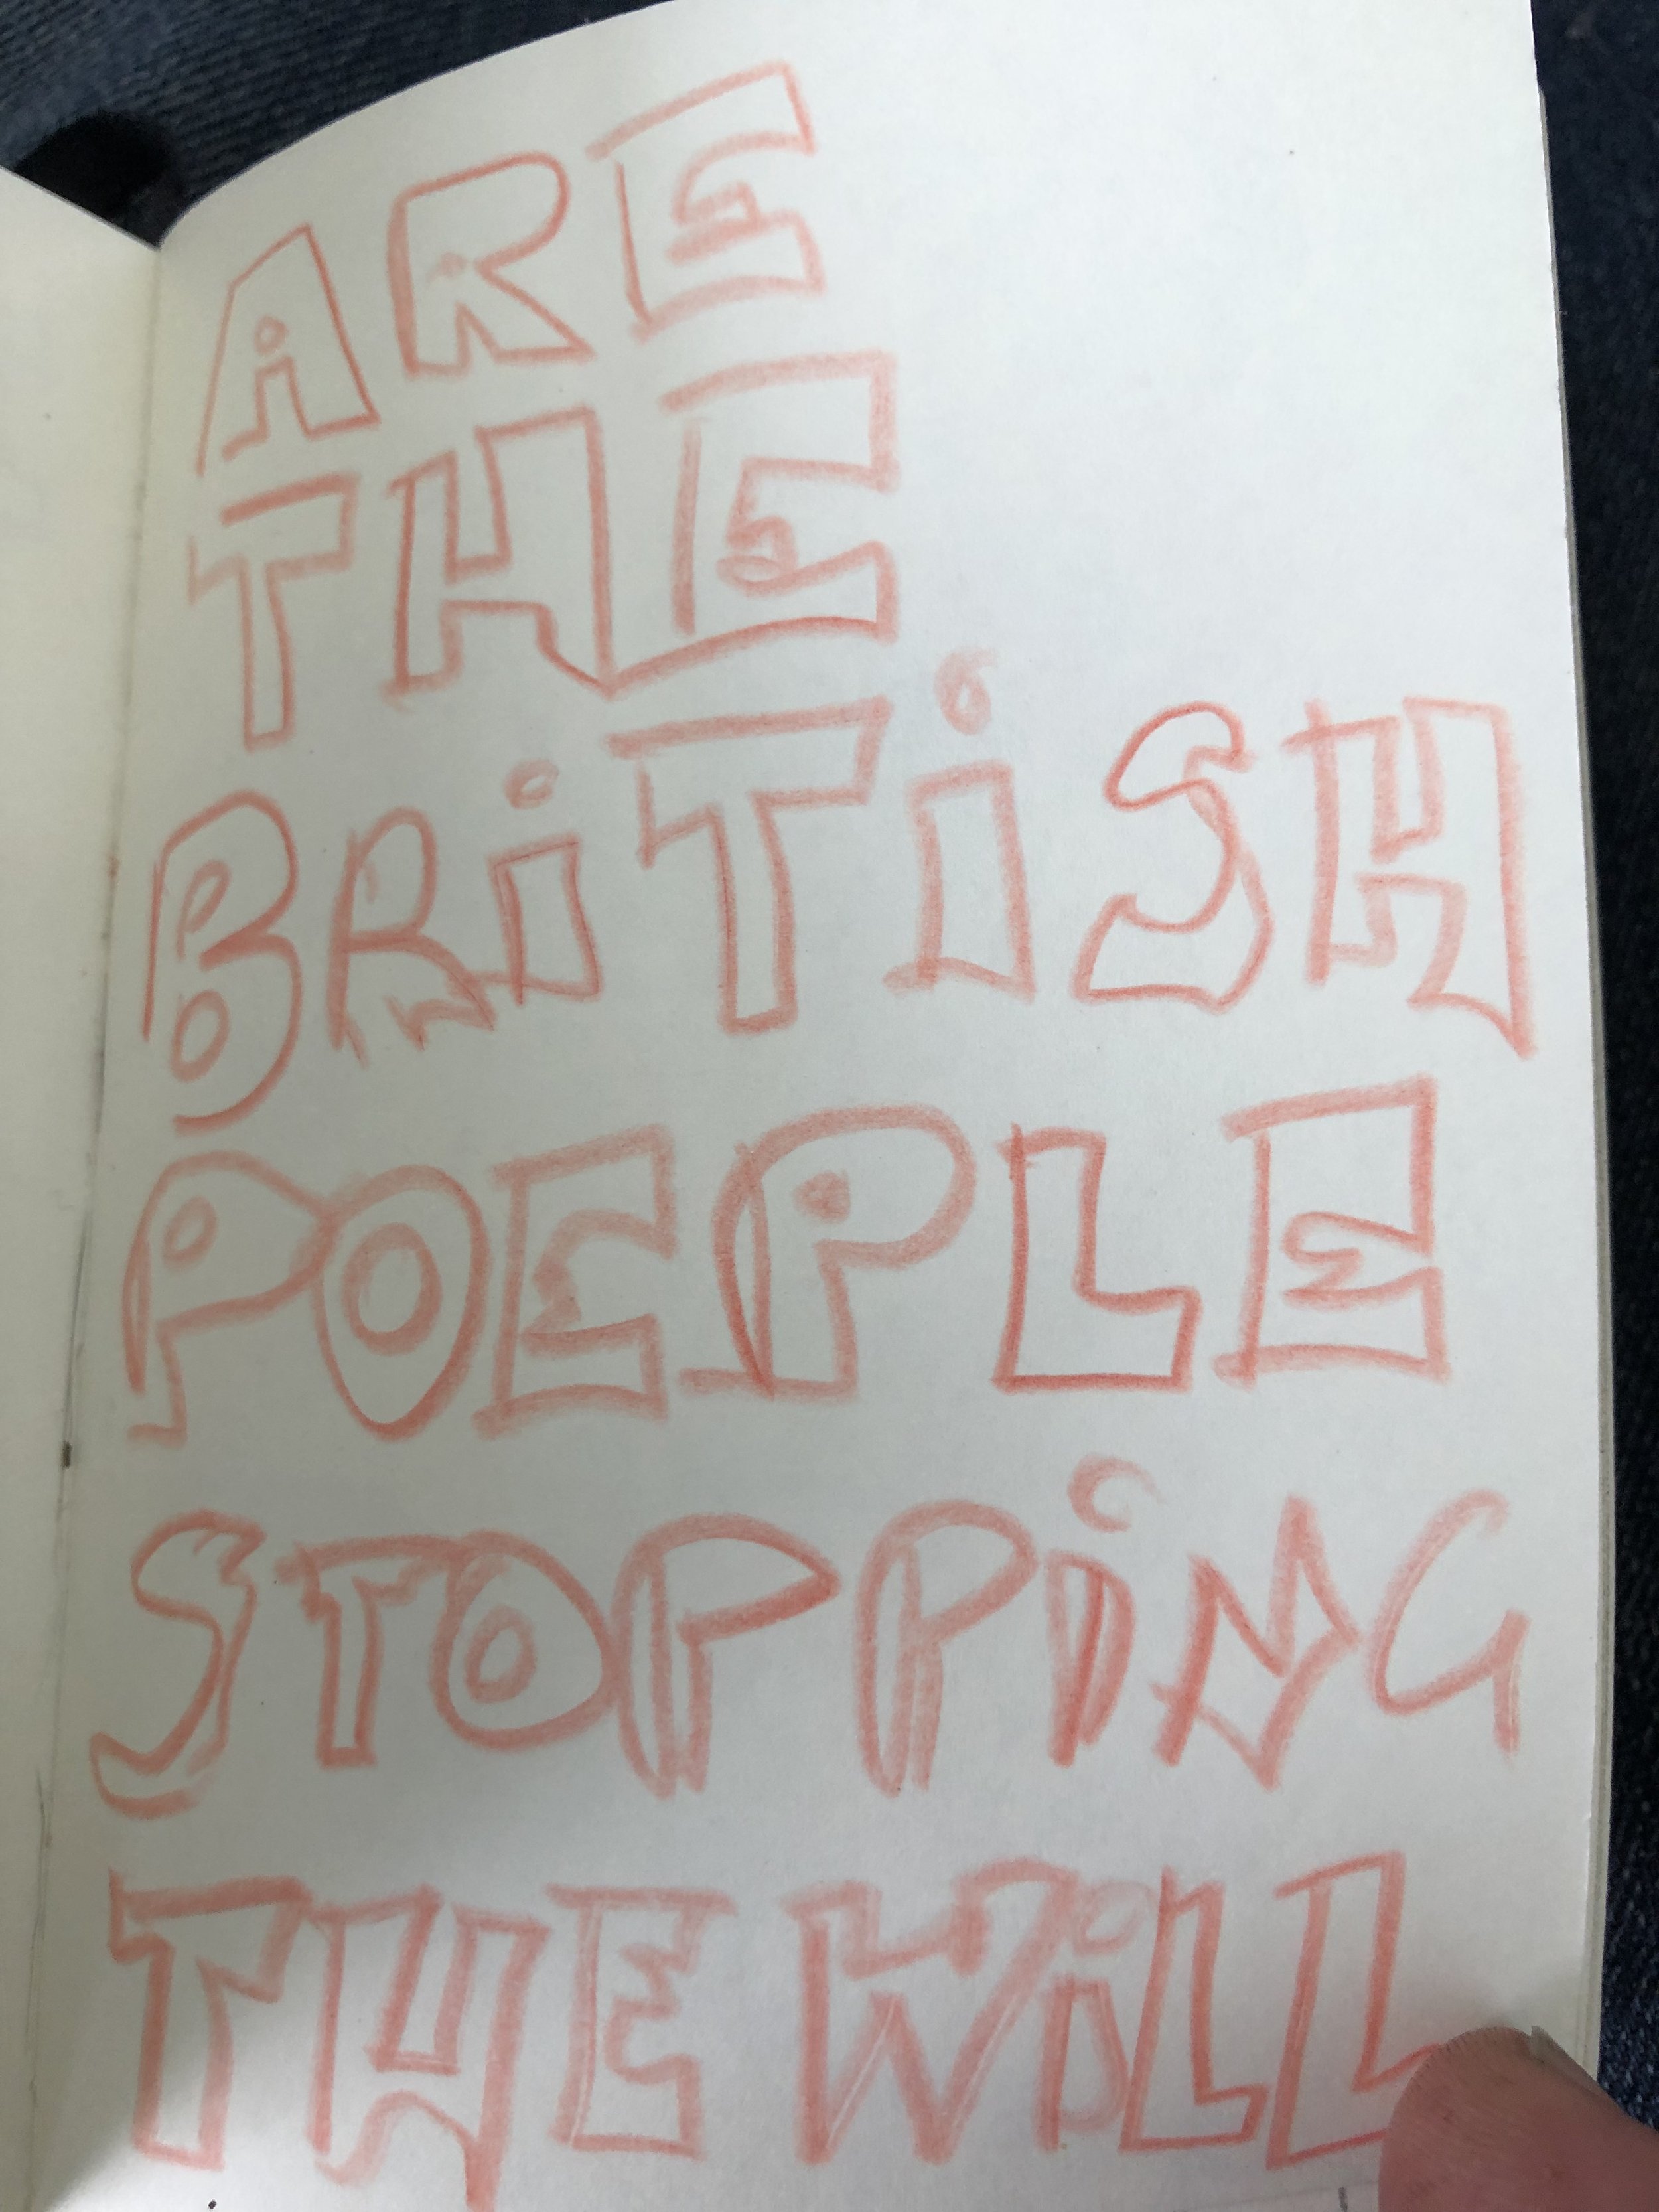 ARE
THE
BRiTiSH
POEPLE
STOPPiNG
THE WiLL